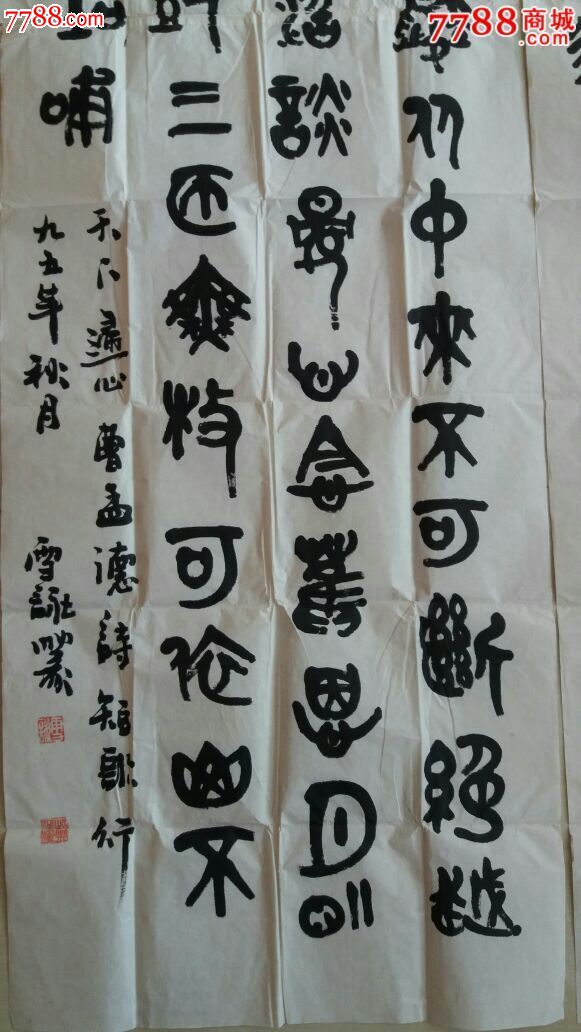 7788.com
7788商城
7788.com
憂从中來不可斷絕越
談讌心念舊恩月明
三匝無枝可依山不
吐哺
天下歸心 曹孟德詩短歌行
九五年秋月 雪詠